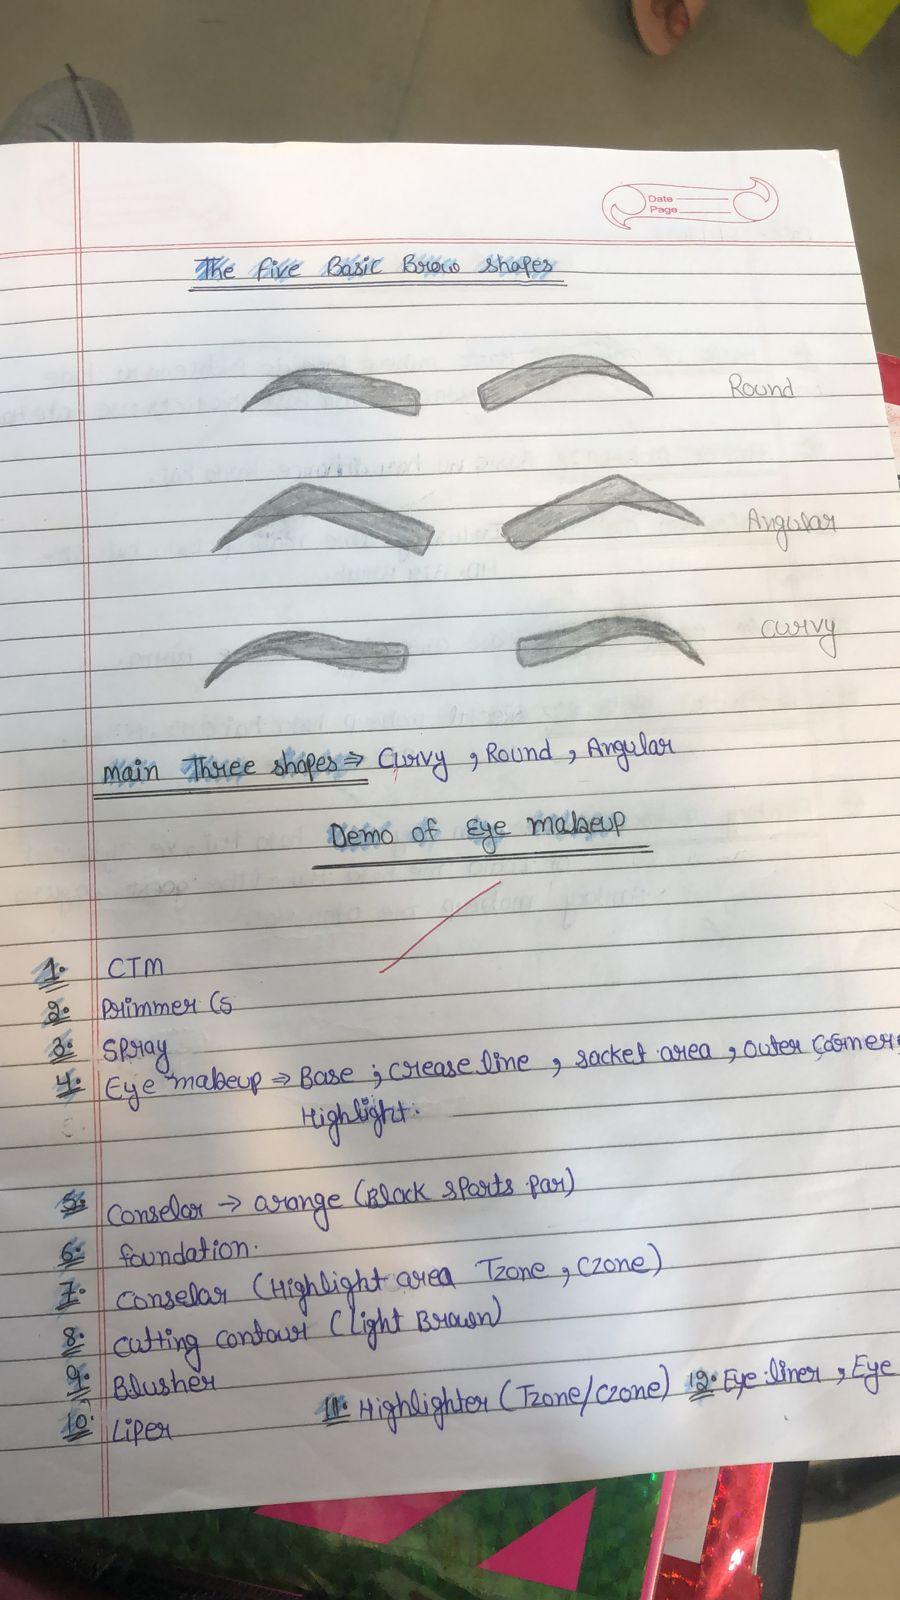 Date
Page
The five Basic Brow shapes
Round
Angular
curvy
main Three shapes ⇒ Curvy , Round , Angular
Demo of Eye makeup
1. CTM
2. Primmer (s
3. Spray
4. Eye makeup ⇒ Base ; crease line , sacket area , outer corner
Highlight.
5. Conselar → orange (Black sparts par)
6. foundation.
7. Conselar (Highlight area Tzone , Czone)
8. cutting contour (light Brown)
9. Blusher
10. Liper 11. Highlighter (Tzone/Czone) 12. Eye liner , Eye